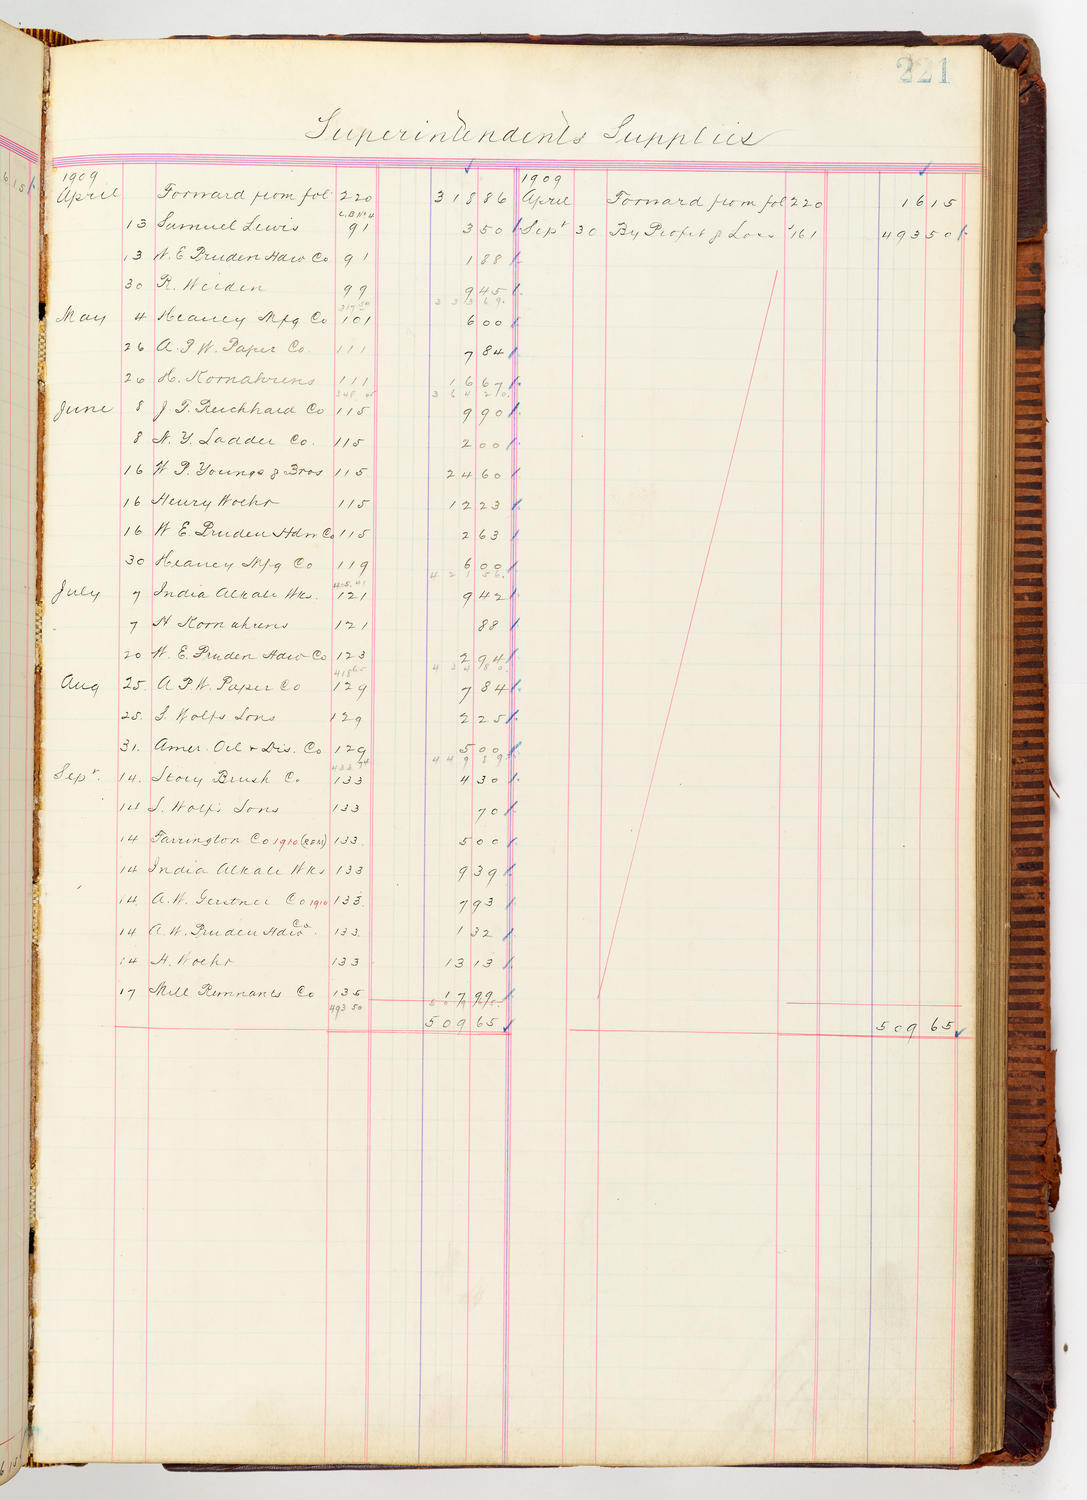 221
Superintendents Supplies
1909 1909
April Forward from fol 220 318 86 April Forward from fol 220 16 15
C.B No 4
13 Samuel Lewis 91 3 50 Sept 30 By Profit & Loss 161 493 50
13 W. E. Pruden Hdw Co 91 1 88
30 R. Weiden 99 9 45
317 54 333 69
May 4 Heaney Mfg Co 101 6 00
26 A. P. W. Paper Co. 111 7 84
26 H. Kornahrens 111 16 67
348 05 364 20
June 8 J. T. Reichhard Co 115 9 90
8 N. Y. Ladder Co. 115 2 00
16 W P. Youngs & Bros 115 24 60
16 Henry Woehr 115 12 23
16 W E. Pruden Hdw Co 115 2 63
30 Heaney Mfg Co 119 6 00
405.41 421 56
July 7 India Alkali Wks. 121 9 42
7 H Kornahrens 121 88
20 W. E. Pruden Hdw Co 123 2 94
418 65 434 80
Aug 25. A P. W. Paper Co 129 7 84
25. S. Wolfs Sons 129 2 25
31. Amer. Oil & Dis. Co 129 5 00
433 74 449 89
Sept. 14. Story Brush Co. 133 4 30
14 S. Wolfs Sons 133 70
14 Farrington Co 1910 133. 5 00
14 India Alkali Wks 133 9 39
14. A. W. Gerstner Co 1910 133. 7 93
14 A. W. Pruden Hdw Co. 133. 1 32
14 H. Woehr 133 13 13
17 Mill Remnants Co 135 17 99
493 50 509 65
509 65 509 65